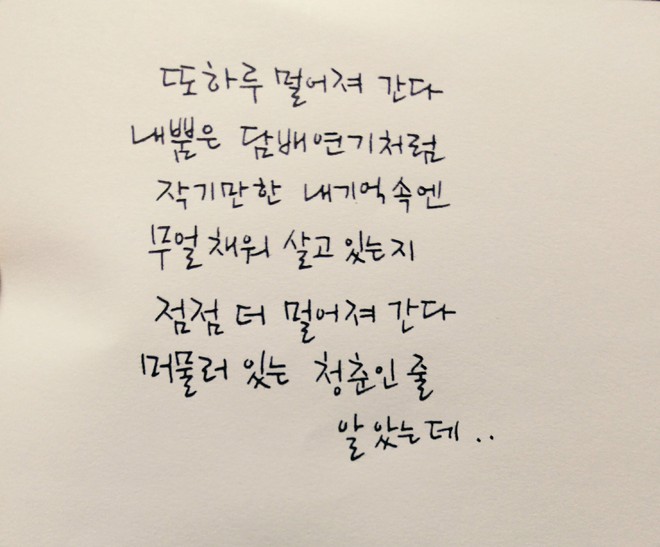 또하루 멀어져 간다
내뿜은 담배연기처럼
작기만한 내기억속엔
무얼 채워 살고 있는지
점점 더 멀어져 간다
머물러 있는 청춘인 줄
알았는데..